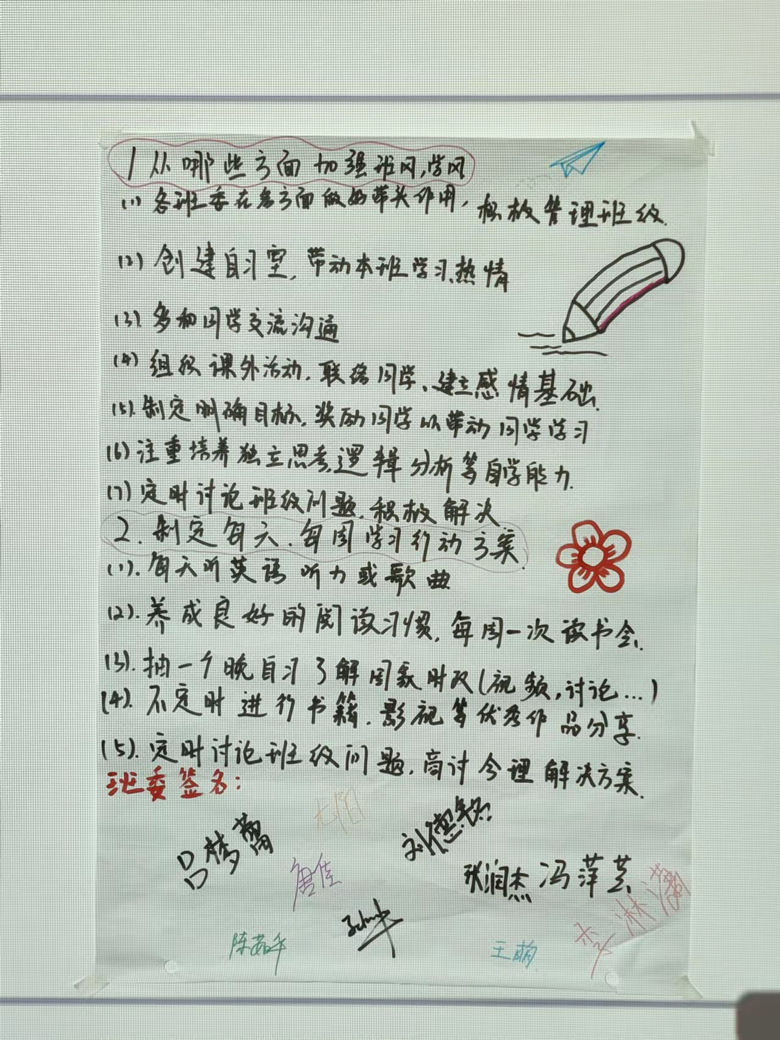 1 从哪些方面加强班风,学风
(1) 各班委在各方面做好带头作用, 积极管理班级.
(2) 创建自习室, 带动本班学习热情
(3) 多和同学交流沟通
(4) 组织课外活动, 联络同学、建立感情基础.
(5) 制定明确目标, 奖励同学以带动同学学习
(6) 注重培养独立思考,逻辑分析等自学能力.
(7) 定时讨论班级问题, 积极解决
2. 制定每天、每周学习行动方案.
(1). 每天听英语听力或歌曲
(2). 养成良好的阅读习惯, 每周一次读书会.
(3). 抽一个晚自习了解国家时政(视频,讨论...)
(4). 不定时进行书籍, 影视等优秀作品分享.
(5). 定时讨论班级问题, 商讨合理解决方案.
班委签名:
吕梦蕾 刘德铭
唐佳 张润杰 冯萍芸
王萌